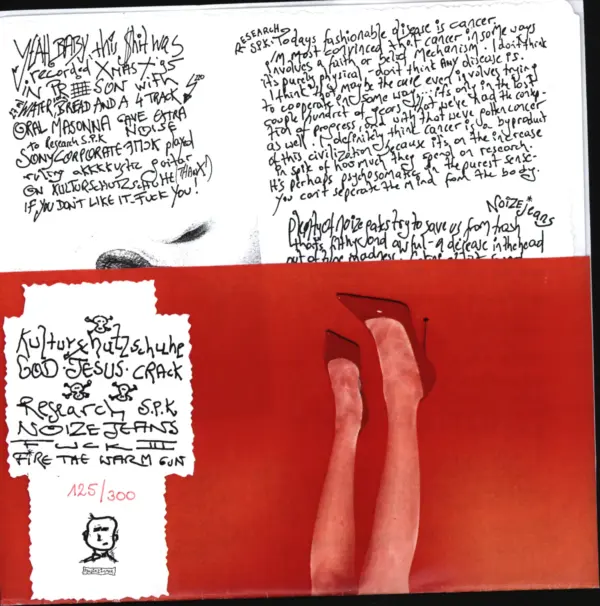 YEAH BABY this shit was
recorded XMAS '95
IN PRISON with
WATER BREAD AND A 4 TRACK
ORAL MASONNA GAVE EXTRA
NOISE
to Research S.P.K
SONY CORPORATE played
akkkustic guitar
ON KULTURSCHUTZSCHUHE (THANX!)
IF YOU DON'T LIKE IT - FUCK YOU!
RESEARCH S.P.K: Todays fashionable disease is cancer.
I'm most convinced that cancer in some ways
involves a faith or belief mechanism. I don't think
it's purely physical - don't think any disease is.
I think that maybe the cure even involves trying
to cooperate in some way... it's only in the last
couple hundret of years that we've had the concep-
tion of progress, and with that we've gotten cancer
as well. I definitely think cancer is a byproduct
of this civilization because it's on the increase
in spite of how much they spend on research.
It's perhaps psychosomatic in the purest sense-
You can't seperate the mind from the body.
NOIZE Jeans
Plenty of noize paks try to save us from trash
that's filthy and awful - a disease in the head
Kulturschutzschuhe
GOD · JESUS · CRACK
Research S.P.K
NOIZE JEANS
FUCK III
FIRE THE WARM GUN
125/300